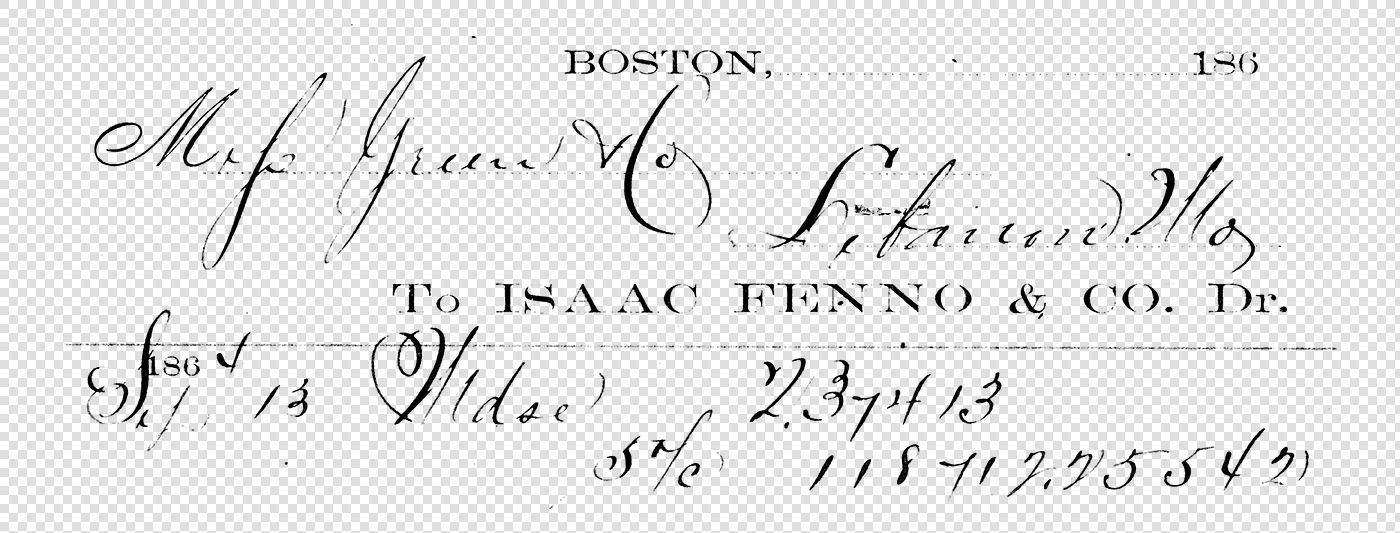 BOSTON, 186
Mess Green & Co
Lebanon. Mo
To ISAAC FENNO & CO. Dr.
1864
Sep 13 Mdse 2.374 13
5 o/o 118 71 2.255 42